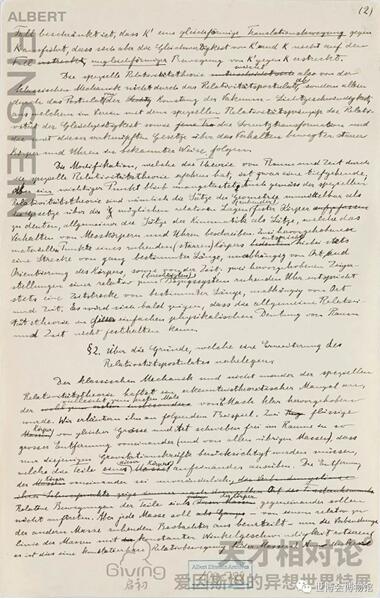 (2)
ALBERT
EINSTEIN
Fall beschränkt ist, dass K' eine gleichförmige Translationsbewegung gegen
K ausführt, dass sich aber die Gleichwertigkeit von K und K' nicht auf den
Fall ungleichförmiger Bewegung von K' gegen K erstreckt.
Die spezielle Relativitätstheorie weicht also von der
klassischen Mechanik nicht durch das Relativitätspostulat ab, sondern allein
durch das Postulat von der Konstanz der Vakuum-Lichtgeschwindigkeit,
aus welchem im Verein mit dem speziellen Relativitätsprinzip die Relati-
vität der Gleichzeitigkeit sowie die Lorentztransformation und
die mit dieser verknüpften Gesetze über das Verhalten bewegter starrer
Körper und Uhren in bekannter Weise folgen.
Die Modifikation, welche die Theorie von Raum und Zeit durch
die spezielle Relativitätstheorie erfahren hat, ist zwar eine tiefgehende;
aber ein wichtiger Punkt blieb unangetastet. Auch gemäss der speziellen
Relativitätstheorie sind nämlich die Sätze der Geometrie unmittelbar als
Gesetze über die möglichen relativen Lagen fester Körper
zu deuten, allgemeiner die Sätze der Kinematik als Sätze, welche das
Verhalten von Messkörpern und Uhren beschreiben. Zwei hervorgehobenen
materiellen Punkten eines ruhenden (starren) Körpers entspricht hiebei stets
eine Strecke von ganz bestimmter Länge, unabhängig von Ort und
Orientierung des Körpers, sowie von der Zeit; zwei hervorgehobenen Zeiger-
stellungen einer relativ zum (berechtigten) Bezugssystem ruhenden Uhr entspricht
stets eine Zeitstrecke von bestimmter Länge, unabhängig von Ort
und Zeit. Es wird sich bald zeigen, dass die allgemeine Relativi-
tätstheorie an dieser einfachen physikalischen Deutung von Raum
und Zeit nicht festhalten kann.
§2. Über die Gründe, welche eine Erweiterung des
Relativitätspostulates nahelegen.
Der klassischen Mechanik und nicht minder der speziellen
Relativitätstheorie haftet ein erkenntnistheoretischer Mangel an,
der vielleicht zum ersten Male von E. Mach klar hervorgehoben
wurde. Wir erläutern ihn an folgendem Beispiel. Zwei flüssige
Körper von gleicher Grösse und Art schweben frei im Raume in so
grosser Entfernung voneinander (und von allen übrigen Massen), dass
nur diejenigen Gravitationskräfte berücksichtigt werden müssen,
welche die Teile eines dieser Körper aufeinander ausüben. Die Entfernung
der Körper voneinander sei unveränderlich.
Relative Bewegungen der Teile eines der Körper gegeneinander sollen
nicht auftreten. Aber jede Masse soll von einem relativ zu
der anderen Masse ruhenden Beobachter aus beurteilt um die Verbindungs-
linie der Massen mit konstanter Winkelgeschwindigkeit rotieren
es ist dies eine konstatierbare Relativbewegung
Giving
启初
Albert Einstein Archives
天才相对论
爱因斯坦的异想世界特展
世博会博物馆